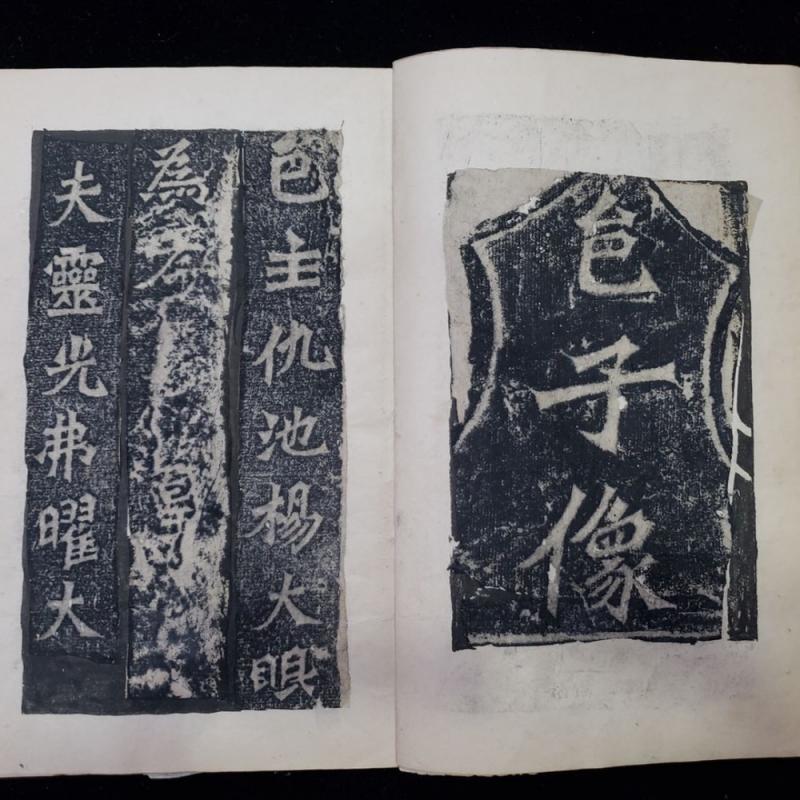 邑子像
邑主仇池楊大眼
為孝皇
夫靈光弗曜大